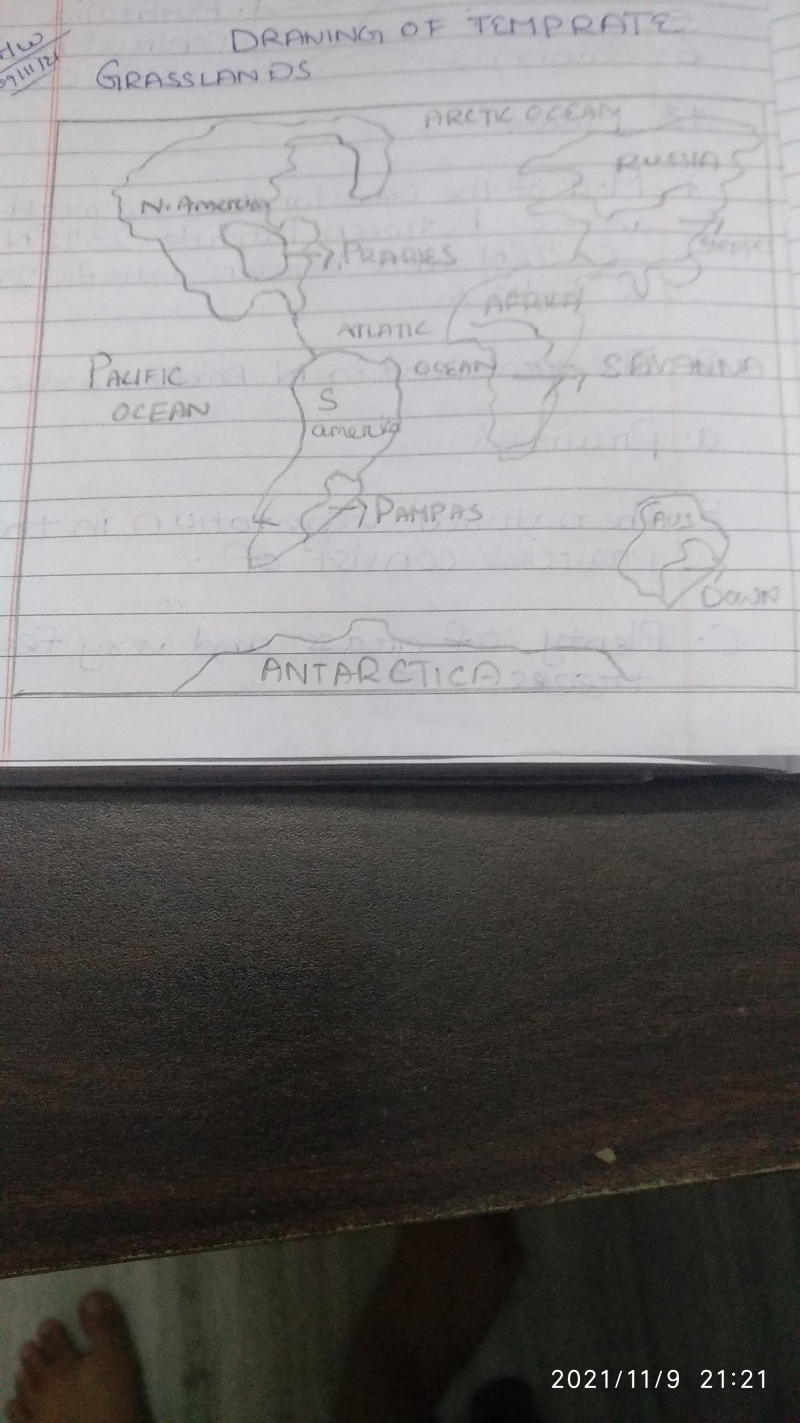 HW
09/11/21
DRANING OF TEMPRATE
GRASSLANDS
ARCTIC OCEAN
RUSSIA
N. America
PRARIES
AFRICA
ATLATIC
OCEAN
SAVANNA
PACIFIC
OCEAN
S
america
PAMPAS
AUS
DOWN
ANTARCTICA
2021/11/9 21:21